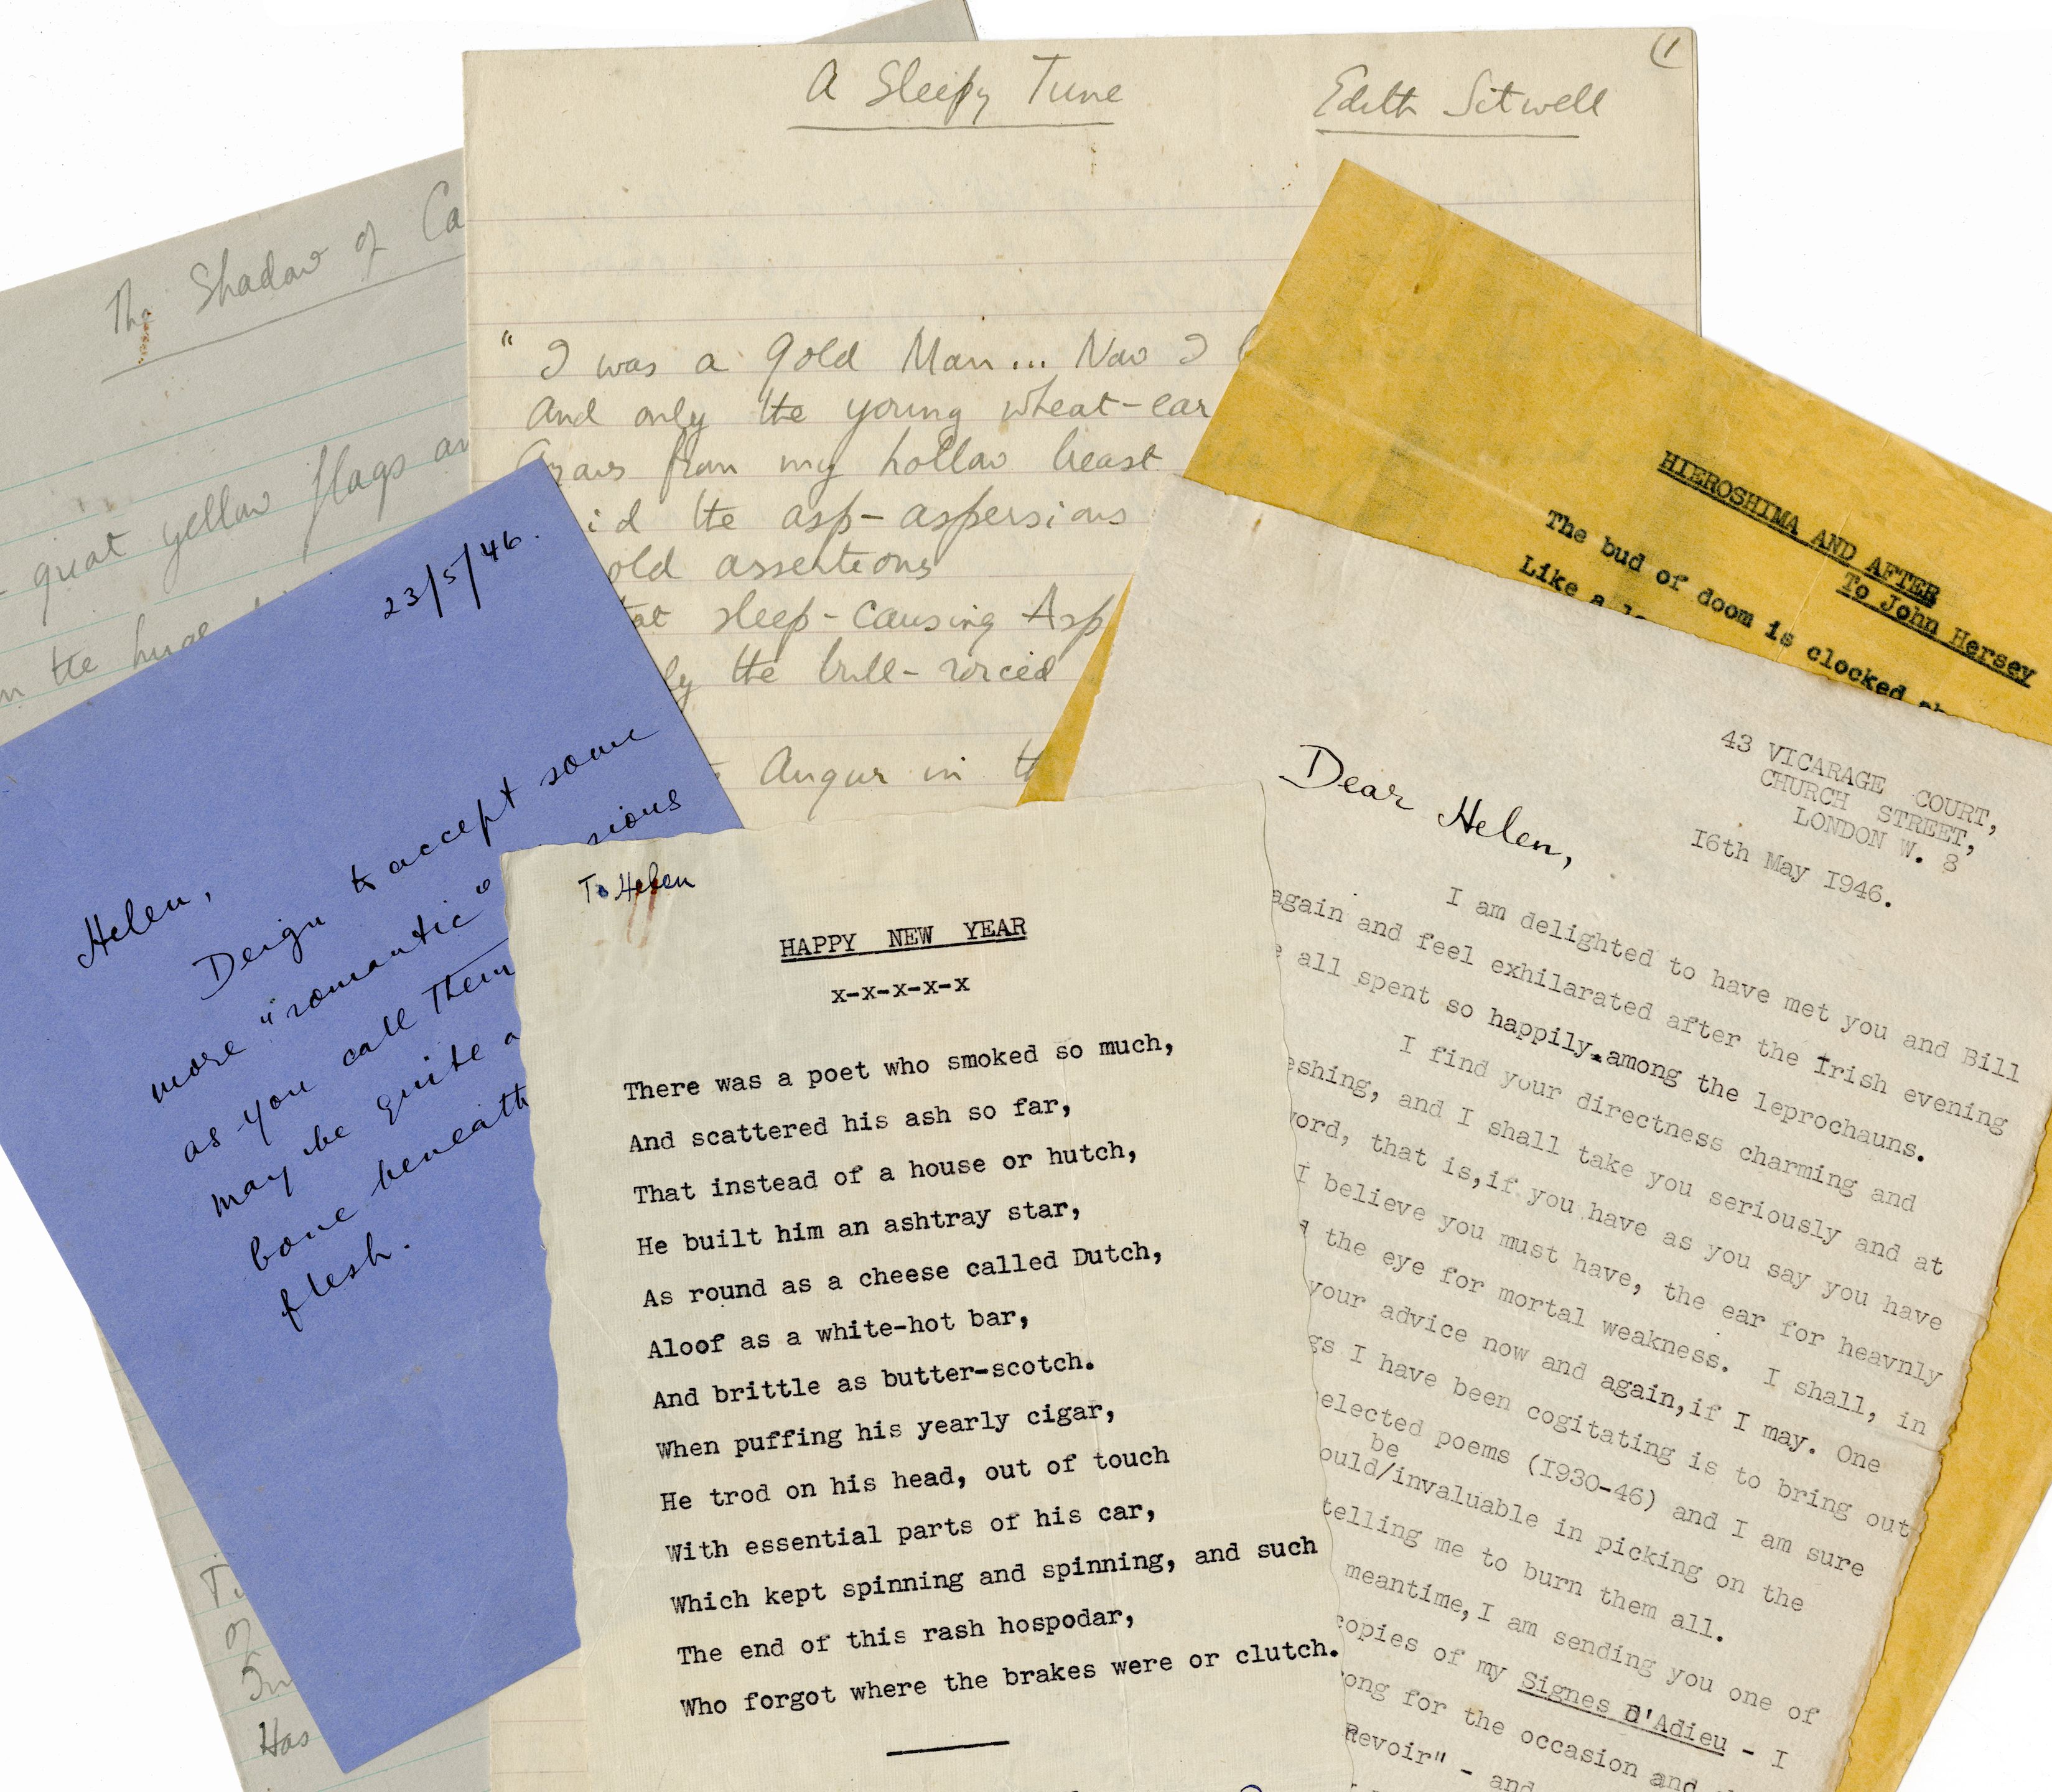 (1
A Sleepy Tune
Edith Sitwell
" I was a Gold Man... Now I
And only the young wheat-ear
Grows from my hollow breast
id the asp-aspersions
old assertions
at sleep-causing Asp
ly the bull-voiced
Augur in th
The Shadow of Ca
great yellow flags an
in the huge
Tu
of
Has
HIEROSHIMA AND AFTER
To John Hersey
The bud of doom is clocked
Like a
23/5/46.
Helen,
Deign to accept some
more "romantic" sions
as you call them
may be quite a
bone beneath
flesh.
To Helen
HAPPY NEW YEAR
x-x-x-x-x
There was a poet who smoked so much,
And scattered his ash so far,
That instead of a house or hutch,
He built him an ashtray star,
As round as a cheese called Dutch,
Aloof as a white-hot bar,
And brittle as butter-scotch.
When puffing his yearly cigar,
He trod on his head, out of touch
With essential parts of his car,
Which kept spinning and spinning, and such
The end of this rash hospodar,
Who forgot where the brakes were or clutch.
43 VICARAGE COURT,
CHURCH STREET,
LONDON W. 8
16th May 1946.
Dear Helen,
I am delighted to have met you and Bill
again and feel exhilarated after the Irish evening
e all spent so happily.among the leprochauns.
I find your directness charming and
eshing, and I shall take you seriously and at
ord, that is,if you have as you say you have
I believe you must have, the ear for heavnly
d the eye for mortal weakness. I shall, in
your advice now and again,if I may. One
gs I have been cogitating is to bring out
elected poems (1930-46) and I am sure
be
ould/invaluable in picking on the
telling me to burn them all.
meantime,I am sending you one of
copies of my Signes D'Adieu - I
ong for the occasion and
Revoir" - and